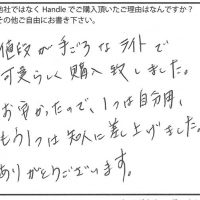 他社ではなく Handle でご購入頂いたご理由はなんですか？
その他ご自由にお書き下さい。
値段が手ごろなライトで
可愛らしく購入致しました。
お安かったので、1つは自分用、
もう1つは知人に差し上げました。
ありがとうございます。